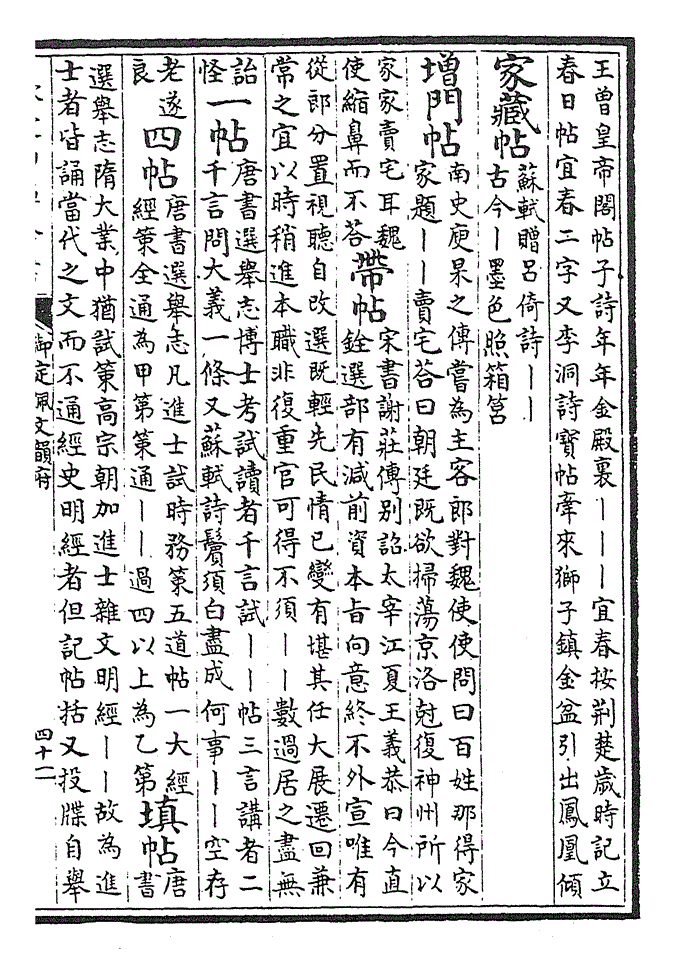 王曾皇帝閣帖子詩年年金殿裏丨丨丨宜春按荆楚歲時記立
春日帖宜春二字又李洞詩寶帖牽來獅子鎮金盆引出鳳凰傾
家藏帖
蘇軾贈呂倚詩丨丨
古今丨墨色照箱筥
增門帖
南史庾杲之傳嘗為主客郎對魏使使問曰百姓那得家
家題丨丨賣宅荅曰朝廷既欲掃蕩京洛尅復神州所以
家家賣宅耳魏
使縮鼻而不荅
帶帖
宋書謝莊傳别詔太宰江夏王義恭曰今直
銓選部有減前資本旨向意終不外宣唯有
從郎分置視聽自改選既輕先民情已變有堪其任大展遷回兼
常之宜以時稍進本職非復重官可得不須丨丨數過居之盡無
詒
怪
一帖
唐書選舉志博士考試讀者千言試丨丨帖三言講者二
千言問大義一條又蘇軾詩鬢須白盡成何事丨丨空存
老遂
良
四帖
唐書選舉志凡進士試時務策五道帖一大經
經策全通為甲第策通丨丨過四以上為乙第
填帖
唐
書
選舉志隋大業中猶試策高宗朝加進士雜文明經丨丨故為進
士者皆誦當代之文而不通經史明經者但記帖括又投牒自舉
御定佩文韻府
四十二